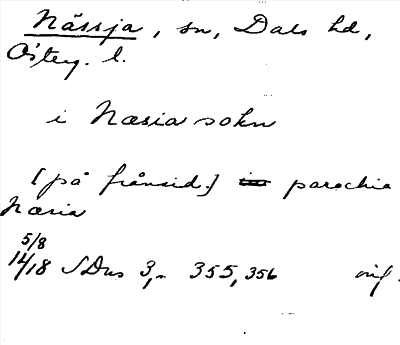 Nässja, sn, Dals hd,
Österg. l.
i Næsia sokn
[på frånsid.] in parochia
Næsia
5/8
14/18 SDns 3, 355, 356 orig.